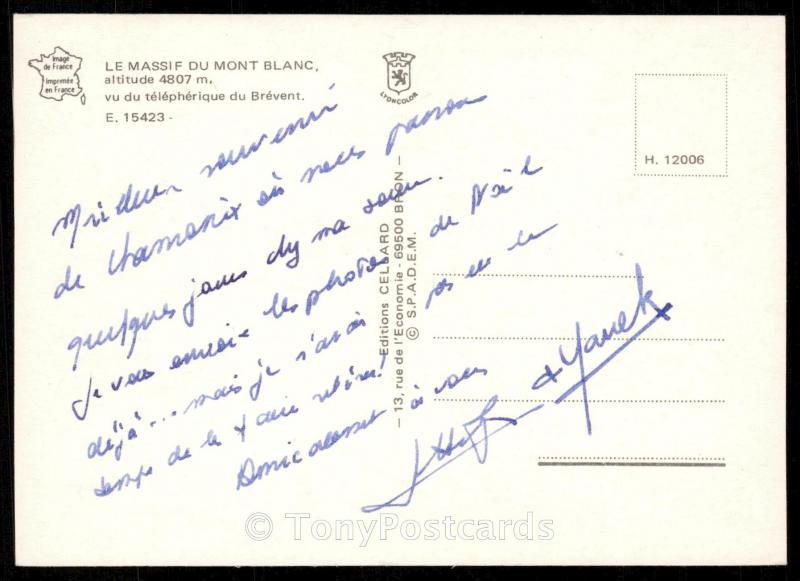 Image
de France
Imprimée
en France
LE MASSIF DU MONT BLANC,
altitude 4807 m,
vu du téléphérique du Brévent.
E. 15423 -
LYONCOLOR
H. 12006
Editions CELLARD
— 13, rue de l'Economie - 69500 BRON —
© S.P.A.D.E.M.
Meilleur souvenir
de Chamonix où nous passons
quelques jours chez ma sœur.
Je vous envoie les photos de Noël
déjà... mais je n'avais pas eu le
temps de les faire retirer!
Amicalement à vous
+ Yanek
© TonyPostcards